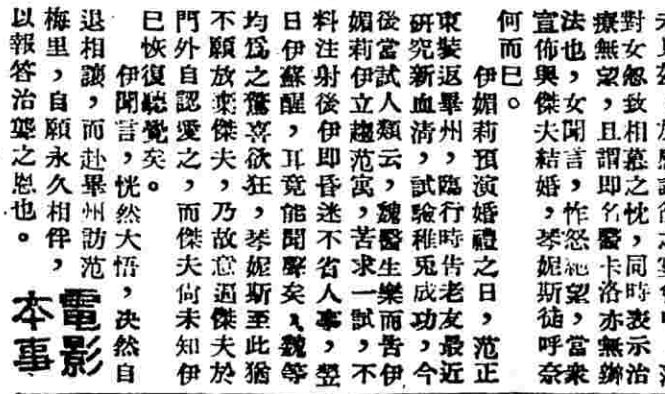 對女忽致相慕之忱，同時表示治
療無望，且謂即名醫卡洛亦無辦
法也，女聞言，怍怒絕望，當衆
宣佈與傑夫結婚，琴妮斯徒呼奈
何而已。
伊媚莉預演婚禮之日，范正
束裝返畢州，臨行時告老友最近
研究新血清，試驗稚兎成功，今
後當試人類云，魏醫生樂而告伊
媚莉伊立趨范寓，苦求一試，不
料注射後伊即昏迷不省人事，翌
日伊蘇醒，耳竟能聞聲矣，魏等
均爲之驚喜欲狂，琴妮斯至此猶
不願放棄傑夫，乃故意逼傑夫於
門外自認愛之，而傑夫尙未知伊
已恢復聽覺矣。
伊聞言，恍然大悟，決然自
退相讓，而赴畢州訪范
梅里，自願永久相伴，
以報答治聾之恩也。
電影
本事